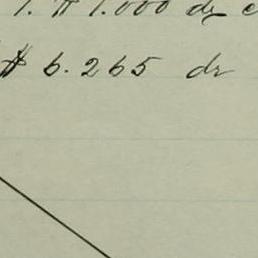 1. $ 1.000 dz c
$ 6.265 dr